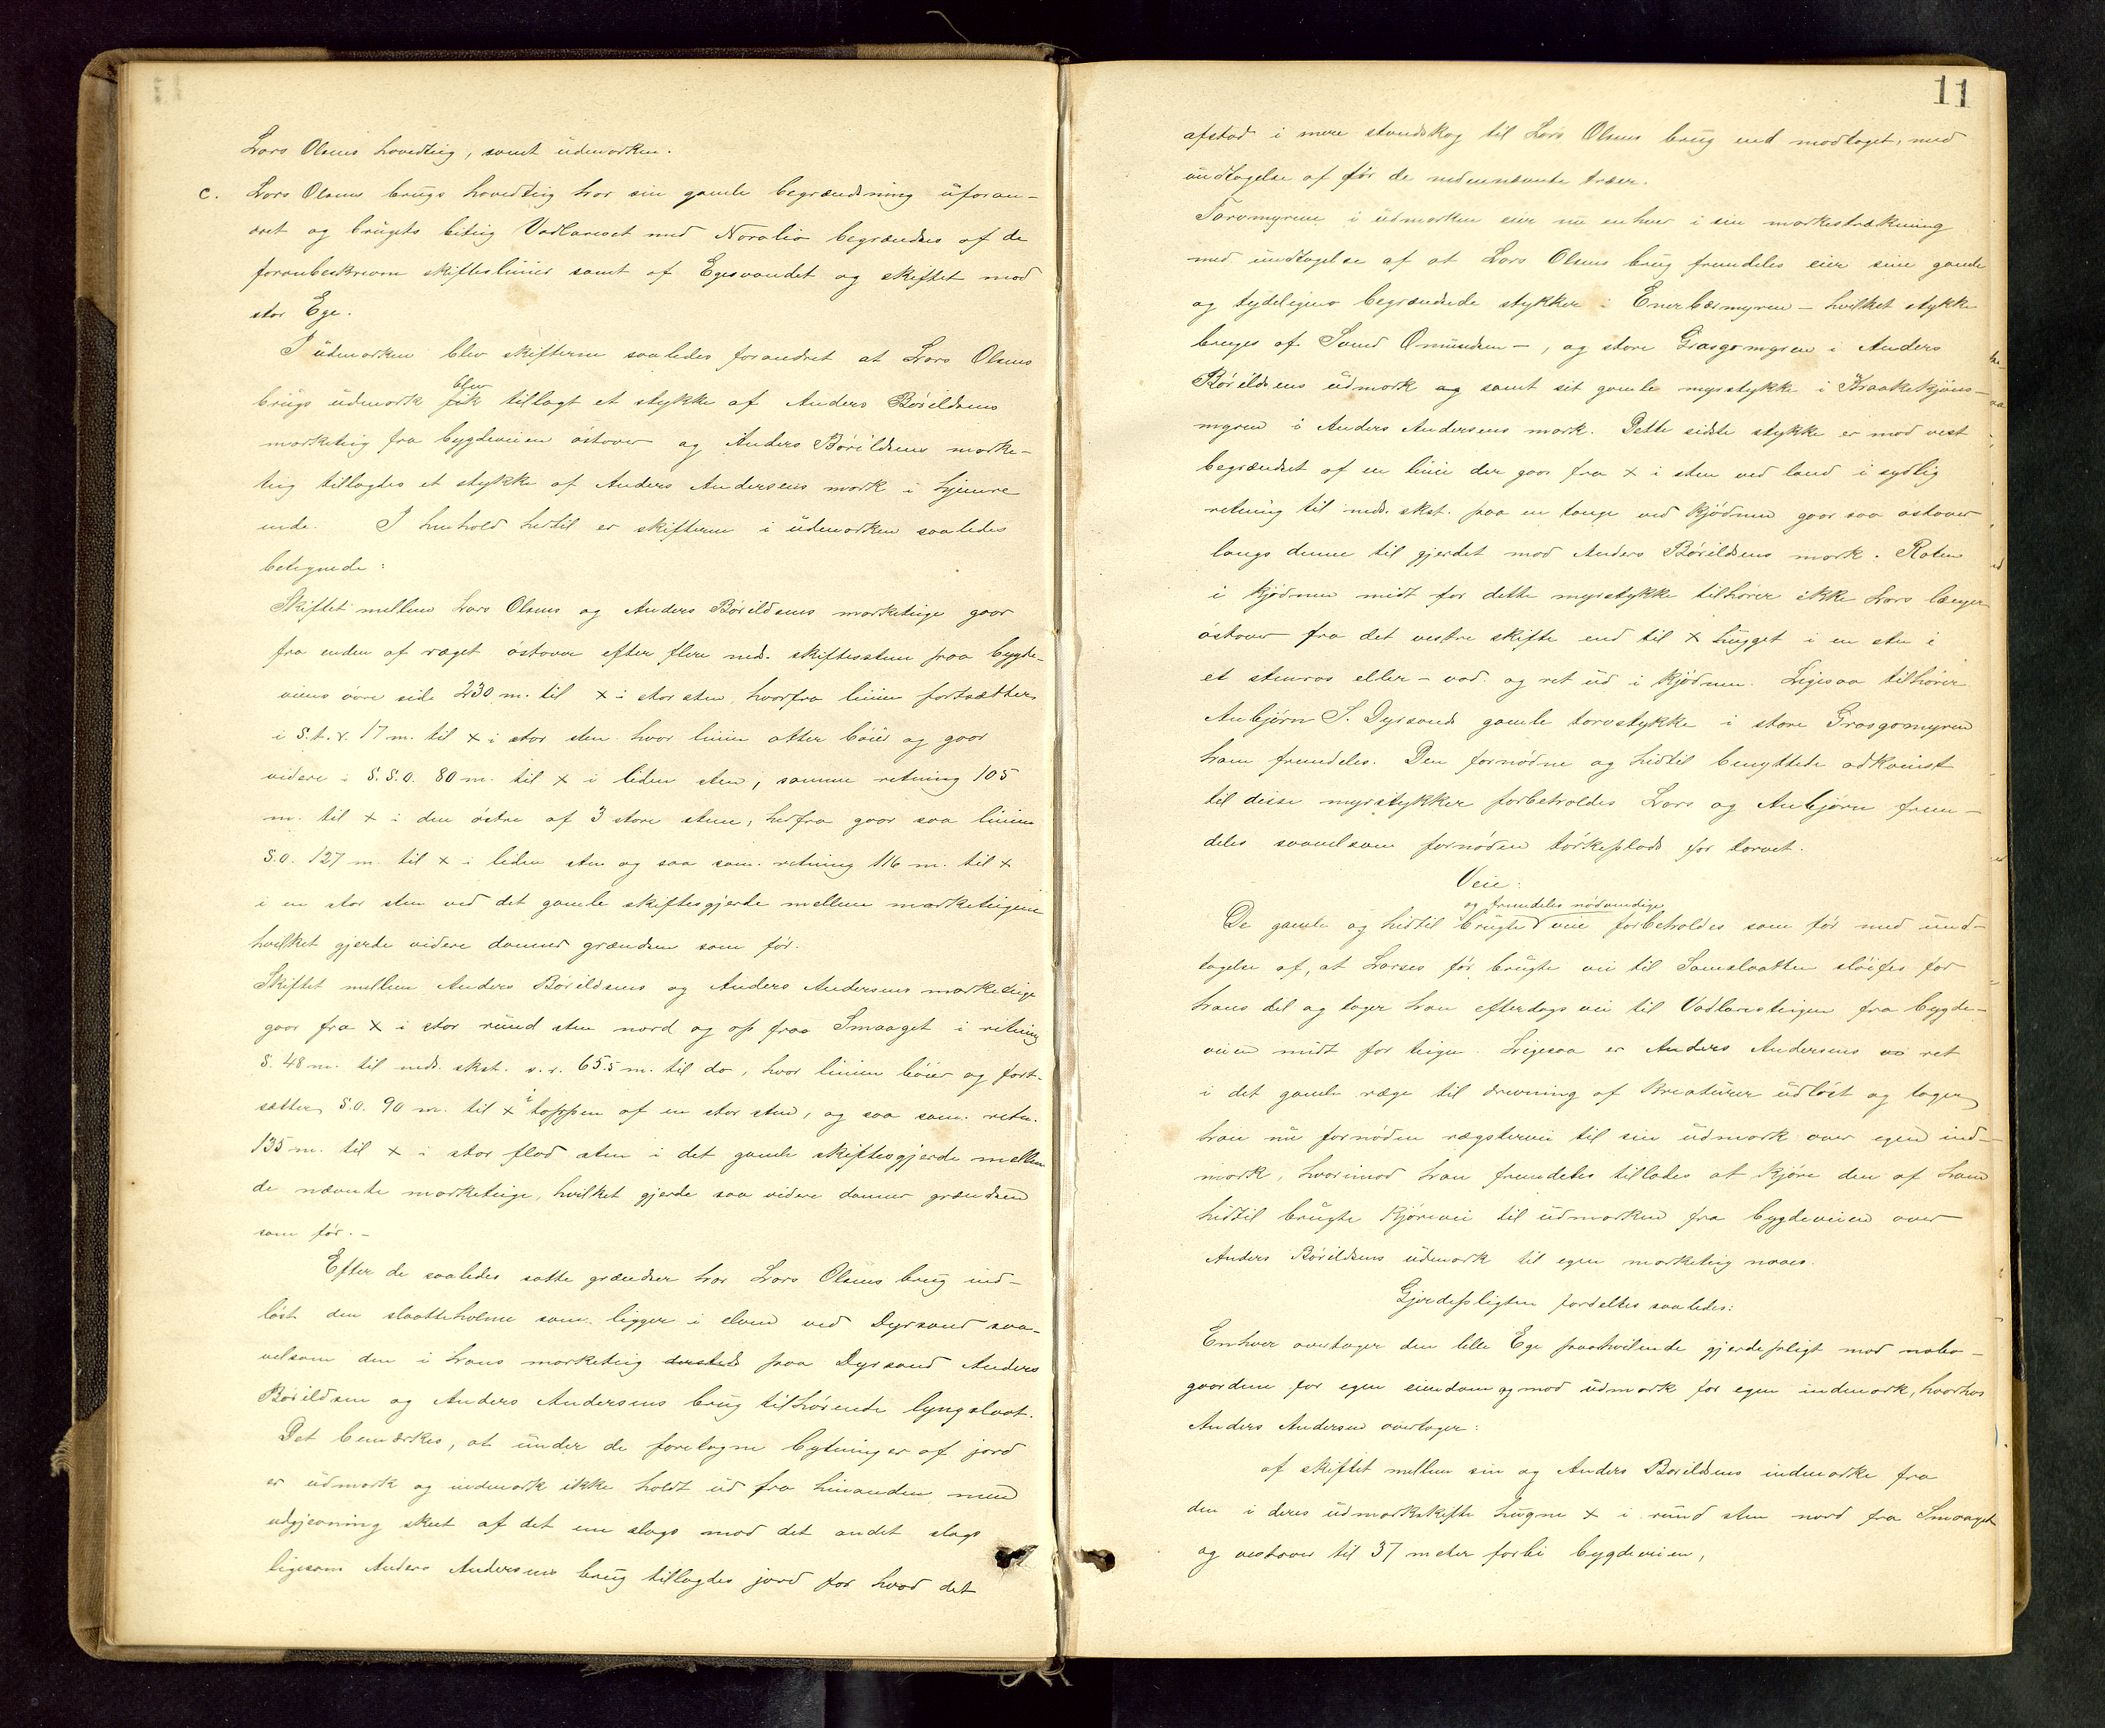 Lars Olsens hovedteig, samt udmarken.
c. Lars Olsens brugs hovedteig har sin gamle begrændsning uforan-
dret og brugets biteig Vadlareset med Noralia begrændses af de
foranbeskrevne skifteslinier samt af Egesvandet og skiftet mod
stor Ege.
I udmarken blev skifterne saaledes forandret at Lars Olsens
blev
brugs udmark fik tillagt et stykke af Anders Børildsens
marketeig fra bygdeveien østover og Anders Børildsens marke-
teig tillagdes et stykke af Anders Andersens mark i hjemre
ende. I henhold hertil er skifterne i udmarken saaledes
betegnede:
Skiftet mellem Lars Olsens og Anders Børildsens marketeige gaar
fra enden af ræget østover efter flere neds. skiftessten paa bygde-
veiens øvre side 230 m. til x i stor sten, hvorfra linien fortsætter
i S.t.v. 17 m. til x i stor sten hvor linien atter bøier og gaar
videre i S.S.O. 80 m. til x i liden sten, samme retning 105
m. til x i den østre af 3 store stene, herfra gaar saa linien
S.O. 127 m. til x i liden sten og saa sam. retning 116 m. til x
i en stor sten ved det gamle skiftesgjerde mellem marketeigene
hvilket gjerde videre danner grændsen som før.
Skiftet mellem Anders Børildsens og Anders Andersens marketeige
gaar fra x i stor rund sten nord og op fraa Smaaget i retning
S. 48 m. til neds. skst. s.r. 65.5 m. til do, hvor linien bøier og fort-
sætter S.O. 90 m. til x i toppen af en stor sten, og saa sam. retn.
135 m. til x i stor flad sten i det gamle skiftesgjerde mellem
de nævnte marketeige, hvilket gjerde saa videre danner grændsen
som før. -
Efter de saaledes satte grændser har Lars Olsens brug ind-
løst den slaatteholme som ligger i elven ved Dyrsand saa-
velsom den i hans marketeig dersteds paa Dyrsand Anders
Børildsen og Anders Andersens brug tilhørende lyngslaat.
Det bemærkes, at under de foretagne bytninger af jord
er udmark og indmark ikke holdt ud fra hinanden, men
udgjevning skeet af det ene slags mod det andet slags
ligesom Anders Andersens brug tillagdes jord for hvad det
11
afstod i mere standskog til Lars Olsens brug end modtaget, med
undtagelse af før de nedennævnte træer.
Torvmyrene i udmarken eier nu enhver i sin markestrækning
med undtagelse af at Lars Olsens brug fremdeles eier sine gamle
og tydeligens begrændsede stykker i Enerbærmyren - hvilket stykke
bruges af Svend Omundsen -, og store Grasgomyren i Anders
Børildsens udmark og samt sit gamle myrstykke i Kraaketjøns-
myren i Anders Andersens mark. Dette sidste stykke er mod vest
begrændset af en linie der gaar fra x i sten ved land i sydlig
retning til neds. skst. paa en tange ved kjødnen gaar saa østover
langs denne til gjerdet mod Anders Børildsens mark. Roten
i kjødnen midt for dette myrstykke tilhører ikke Lars længer
østover fra det vestre skifte end til x hugget i en sten i
et stenras eller - vad. og ret ud i kjødnen. Ligesaa tilhører
Anbjørn S. Dyrsands gamle torvstykke i store Grasgomyren
ham fremdeles. Den fornødne og hidtil benyttede adkomst
til disse myrstykker forbeholdes Lars og Anbjørn frem-
deles saavelsom fornøden tørkeplads for torvet.
Veie:
og fremdeles nødvendige
De gamle og hidtil brugte veie forbeholdes som før med und-
tagelse af, at Larses før brugte vei til Samslaatten sløifes for
hans del og tager han efterdags vei til Vadlaresteigen fra bygde-
veien midt for teigen. Ligesaa er Anders Andersens ret
i det gamle ræge til drevning af Kreaturer udløst og tager
han nu fornøden rægstervei til sin udmark over egen ind-
mark, hvorimod han fremdeles tillades at kjøre den af ham
hidtil brugte kjørevei til udmarken fra bygdeveien over
Anders Børildsens udmark til egen marketeig naaes.
Gjerdepligten fordeltes saaledes:
Enhver overtager den lille Ege paahvilende gjerdepligt mod nabo-
gaardene for egen eiendom og mod udmark for egen indmark, hvorhos
Anders Andersen overtager:
af skiftet mellem sin og Anders Børildsens indmarke fra
den i deres udmarkskifte hugne x i rund sten nord fra Smaaget
og vestover til 37 meter forbi bygdeveien,